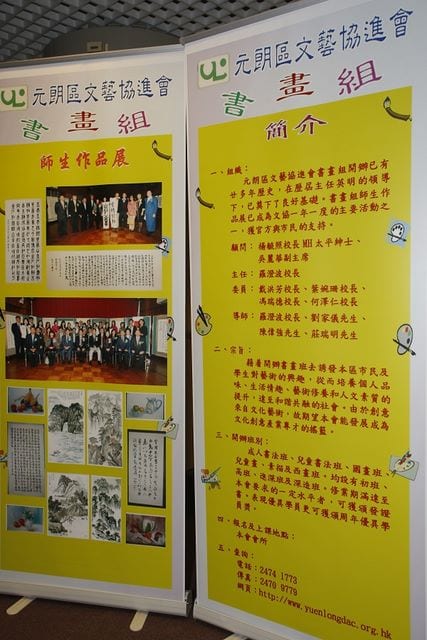 元朗區文藝協進會
書畫組
師生作品展
元朗區文藝協進會
書畫組
簡介
一、組織：
元朗區文藝協進會書畫組開辦已有
廿多年歷史，在歷屆主任英明的領導
下，已奠下了良好基礎。書畫組師生作
品展已成為文協一年一度的主要活動之
一，獲官方與市民的支持。
顧問： 楊毓照校長MH太平紳士、
吳麗華副主席
主任： 羅澄波校長
委員： 戴洪芳校長、葉婉珊校長、
馮瑞德校長、何澤仁校長
導師： 羅澄波校長、劉家儀先生、
陳偉強先生、莊瑞明先生
二、宗旨：
藉着開辦書畫班去誘發本區市民及
學生對藝術的興趣，從而培養個人品
味、生活情趣、藝術修養和人文素質的
提升，達至和諧共融的社會。由於創意
來自文化藝術，故期望本會能發展成為
文化創意產業專才的搖籃。
三、開辦班別：
成人書法班、兒童書法班、國畫班、
兒童畫、素描及西畫班，均設有初班、
高班、進深班及深造班。修業期滿達至
本會要求的一定水平者，可獲頒發證
書。表現優異學員更可獲頒周年優異學
員獎。
四、報名及上課地點：
本會會所
五、查詢：
電話：2474 1773
傳真：2470 9779
網頁：http://www.yuenlongdac.org.hk